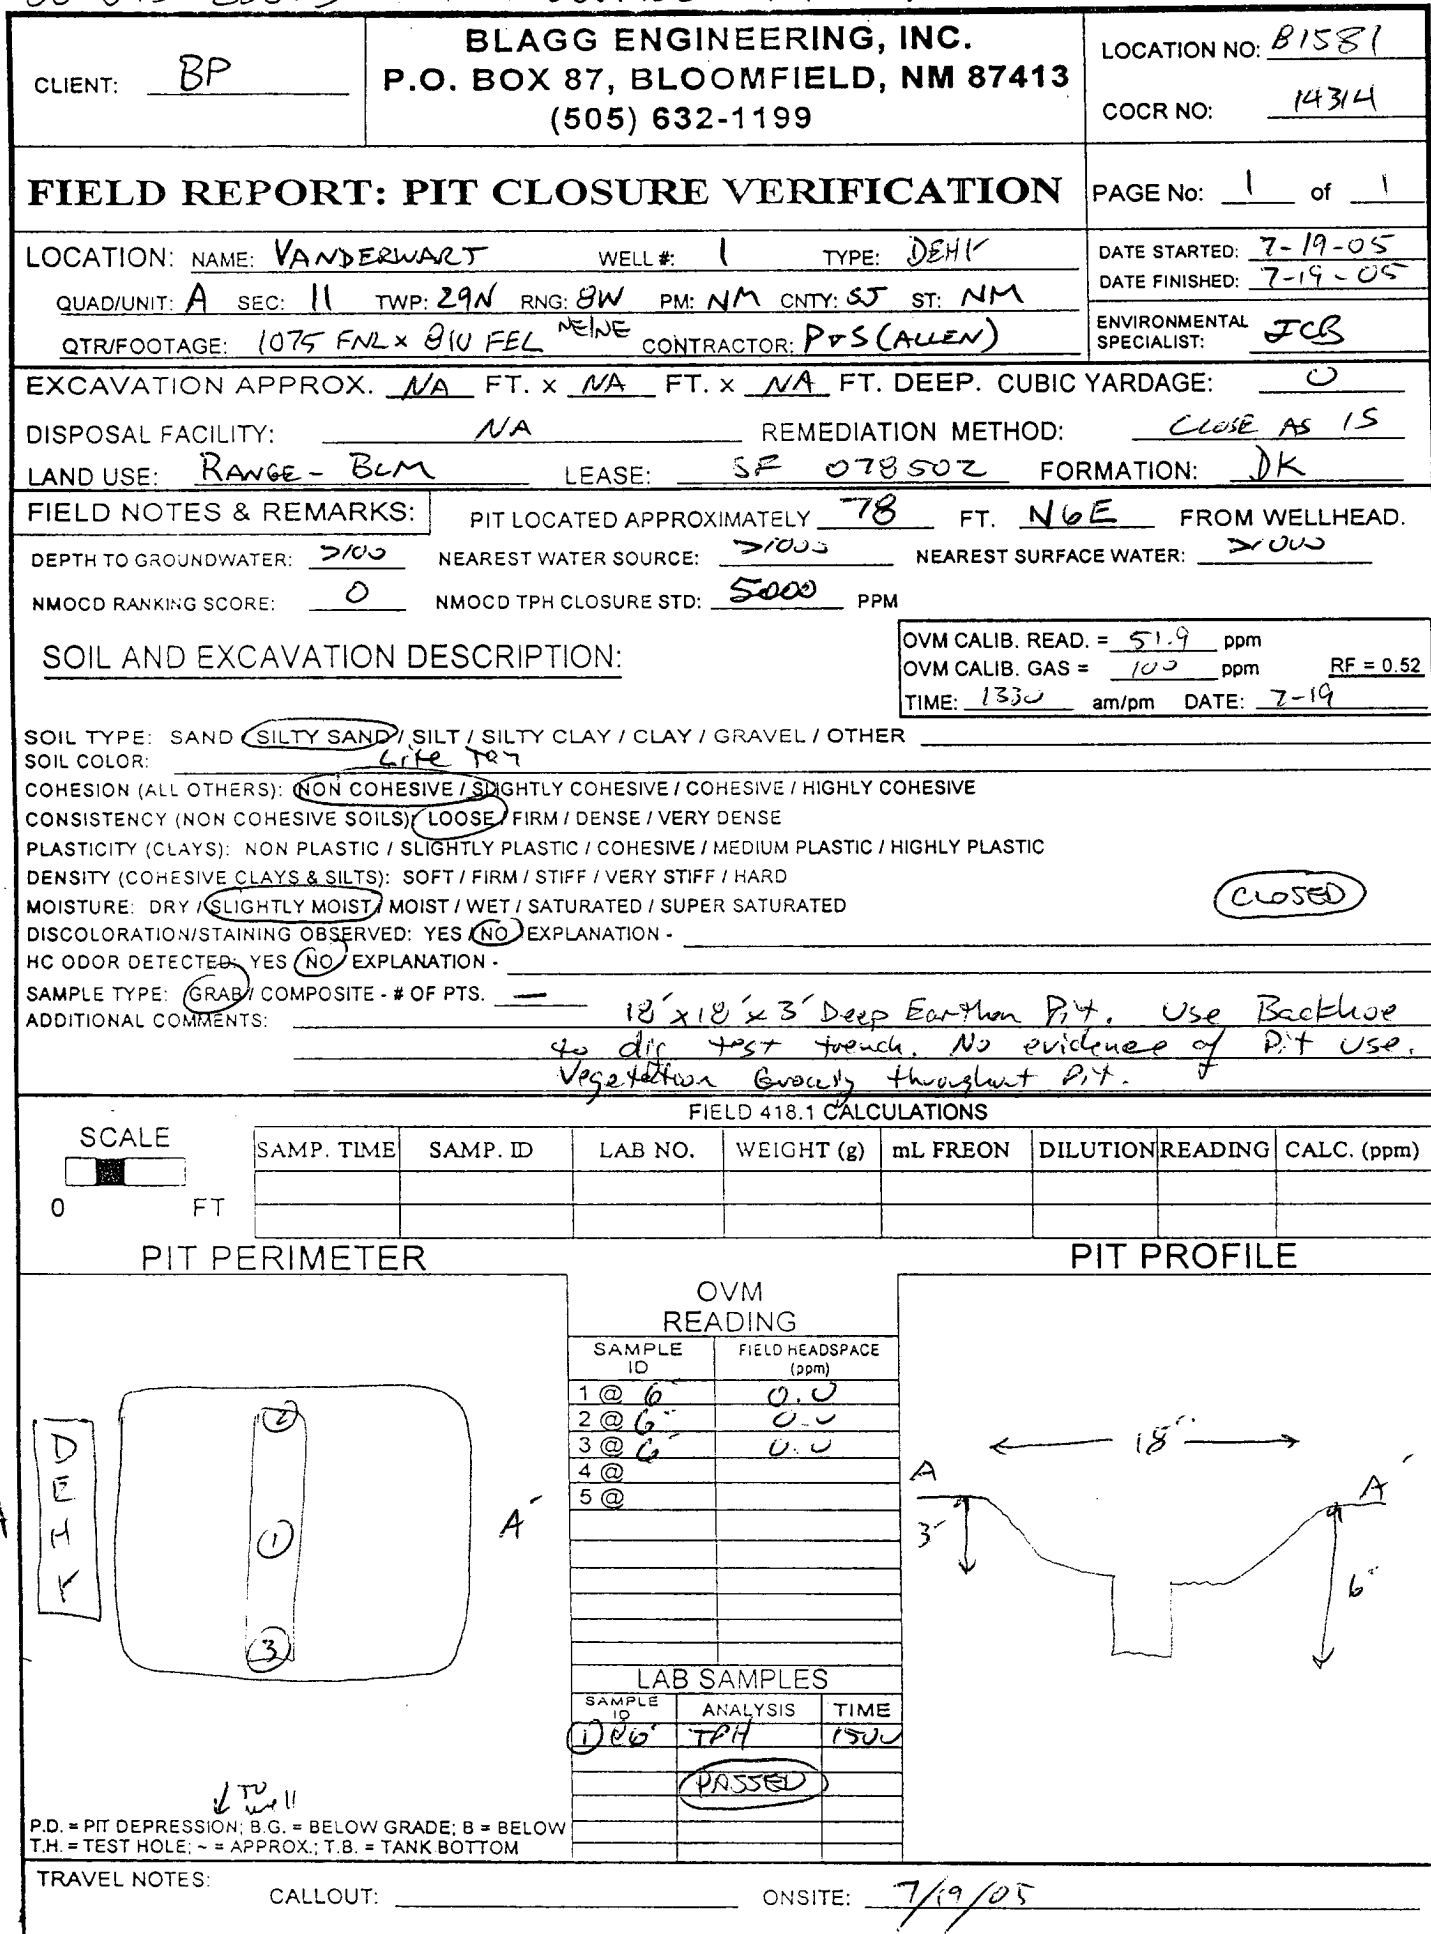 BLAGG ENGINEERING, INC.
P.O. BOX 87, BLOOMFIELD, NM 87413
(505) 632-1199
CLIENT: BP
LOCATION NO: B1581
COCR NO: 14314
FIELD REPORT: PIT CLOSURE VERIFICATION
PAGE No: 1 of 1
LOCATION: NAME: VANDERWART WELL #: 1 TYPE: DEHY
QUAD/UNIT: A SEC: 11 TWP: 29N RNG: 8W PM: NM CNTY: SJ ST: NM
QTR/FOOTAGE: 1075 FNL x 810 FEL NE/NE CONTRACTOR: P&S (ALLEN)
DATE STARTED: 7-19-05
DATE FINISHED: 7-19-05
ENVIRONMENTAL SPECIALIST: JCB
EXCAVATION APPROX. NA FT. x NA FT. x NA FT. DEEP. CUBIC YARDAGE: 0
DISPOSAL FACILITY: NA REMEDIATION METHOD: CLOSE AS IS
LAND USE: RANGE - BLM LEASE: SF 078502 FORMATION: DK
FIELD NOTES & REMARKS: PIT LOCATED APPROXIMATELY 78 FT. N6E FROM WELLHEAD.
DEPTH TO GROUNDWATER: >100 NEAREST WATER SOURCE: >1000 NEAREST SURFACE WATER: >1000
NMOCD RANKING SCORE: 0 NMOCD TPH CLOSURE STD: 5000 PPM
SOIL AND EXCAVATION DESCRIPTION:
OVM CALIB. READ. = 51.9 ppm
OVM CALIB. GAS = 100 ppm RF = 0.52
TIME: 1330 am/pm DATE: 7-19
SOIL TYPE: SAND / SILTY SAND / SILT / SILTY CLAY / CLAY / GRAVEL / OTHER
SOIL COLOR: Lite Tan
COHESION (ALL OTHERS): NON COHESIVE / SLIGHTLY COHESIVE / COHESIVE / HIGHLY COHESIVE
CONSISTENCY (NON COHESIVE SOILS): LOOSE / FIRM / DENSE / VERY DENSE
PLASTICITY (CLAYS): NON PLASTIC / SLIGHTLY PLASTIC / COHESIVE / MEDIUM PLASTIC / HIGHLY PLASTIC
DENSITY (COHESIVE CLAYS & SILTS): SOFT / FIRM / STIFF / VERY STIFF / HARD
MOISTURE: DRY / SLIGHTLY MOIST / MOIST / WET / SATURATED / SUPER SATURATED
CLOSED
DISCOLORATION/STAINING OBSERVED: YES / NO EXPLANATION -
HC ODOR DETECTED: YES / NO EXPLANATION -
SAMPLE TYPE: GRAB / COMPOSITE - # OF PTS. —
ADDITIONAL COMMENTS: 18' x 18' x 3' Deep Earthen Pit. Use Backhoe
to dig test trench. No evidence of Pit Use.
Vegetation throughout Pit.
FIELD 418.1 CALCULATIONS
SCALE
0 FT
SAMP. TIME SAMP. ID LAB NO. WEIGHT (g) mL FREON DILUTION READING CALC. (ppm)
PIT PERIMETER
PIT PROFILE
OVM READING
SAMPLE ID FIELD HEADSPACE (ppm)
1 @ 6' 0.0
2 @ 6' 0.0
3 @ 6' 0.0
4 @
5 @
DEHY
2
1
3
A'
18'
A
A'
3'
6'
LAB SAMPLES
SAMPLE ID ANALYSIS TIME
1 @ 6' TPH 1500
PASSED
TO well
P.D. = PIT DEPRESSION; B.G. = BELOW GRADE; B = BELOW
T.H. = TEST HOLE; ~ = APPROX.; T.B. = TANK BOTTOM
TRAVEL NOTES:
CALLOUT: ONSITE: 7/19/05